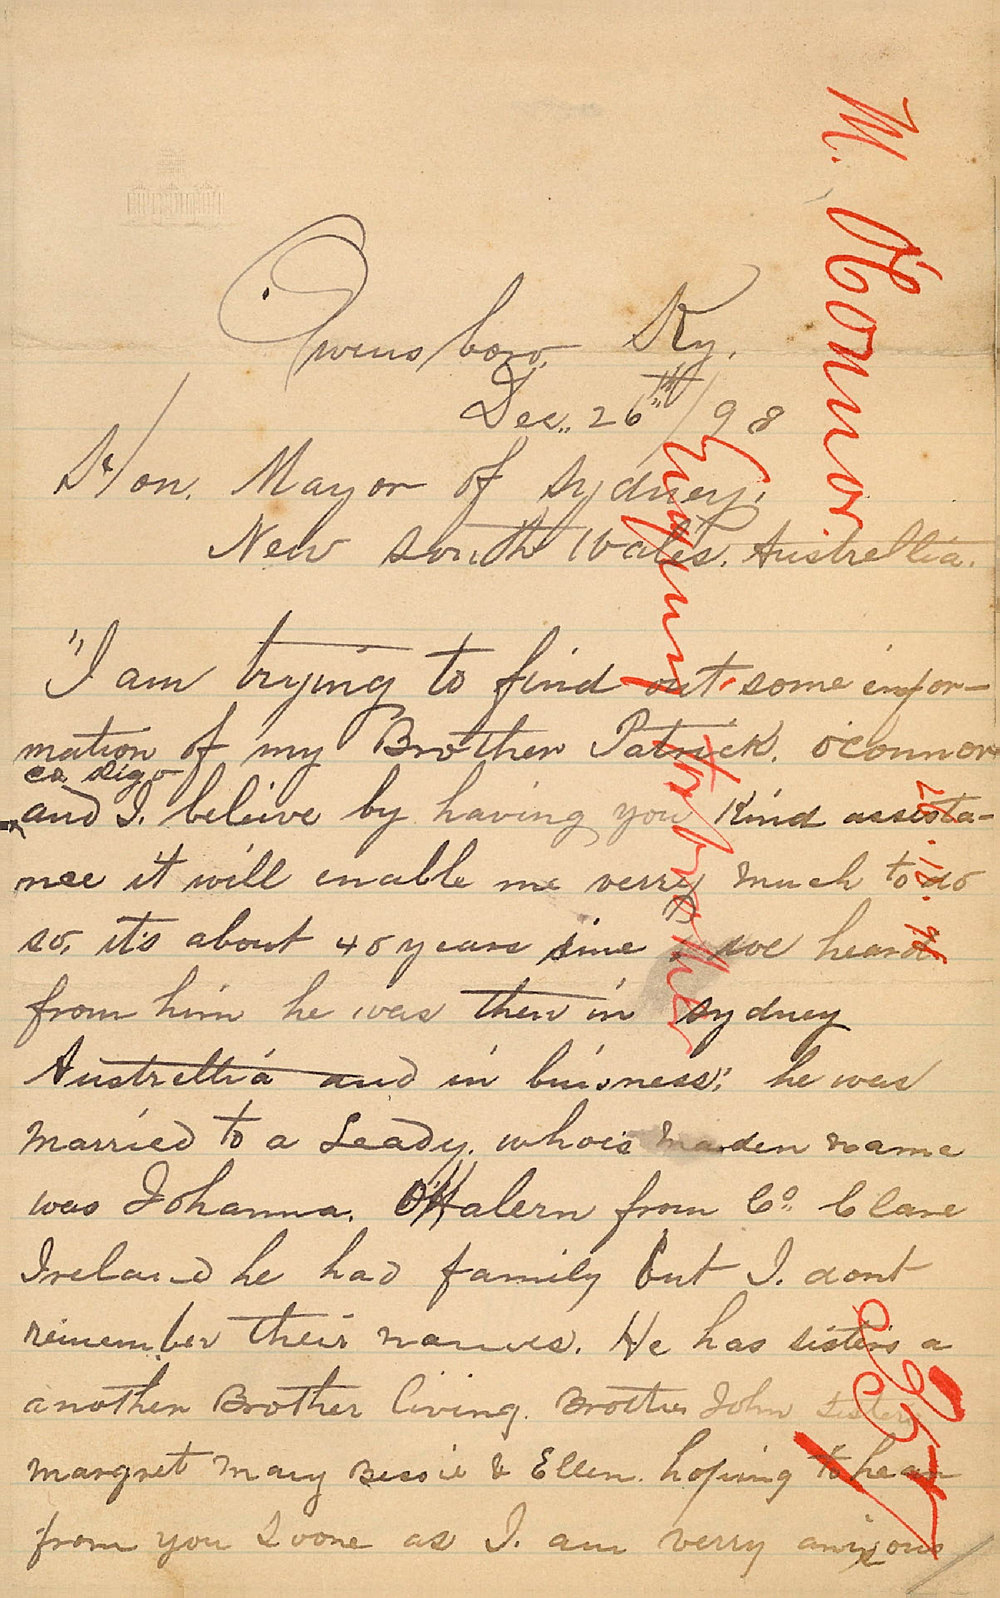 Owensboro, Ky.
Dec. 26th/98
Hon. Mayor of Sydney,
New South Wales. Austrellia.
"I am trying to find out some infor-
mation of my Brother Patrick. oConnor
co Sligo
and I. beleive by having you Kind assista-
nce it will enable me verry much to do
so, it's about 40 years sine we heard
from him he was then in Sydney
Austrellia and in buisness; he was
married to a Leady. whois maiden name
was Johanna. OHalern from Co. Clare
Ireland he had family but I. dont
remember their names. He has sisters a
another Brother living. Brother John sisters
margret mary Bessie & Ellen. hoping to hear
from you Soone as I. am verry anxious
M. O'Connor.
Enquiry for brother